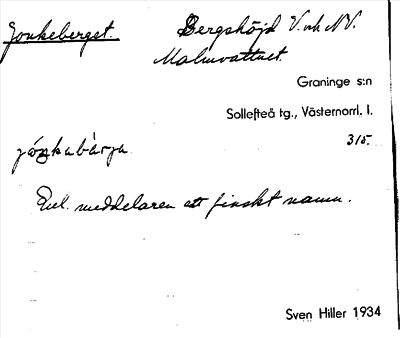 Jonkeberget. Bergshöjd V. och NV.
Malmvattnet.
Graninge s:n
Sollefteå tg., Västernorrl. l.
315.
jóŋkabàrja
Enl. meddelaren ett finskt namn.
Sven Hiller 1934